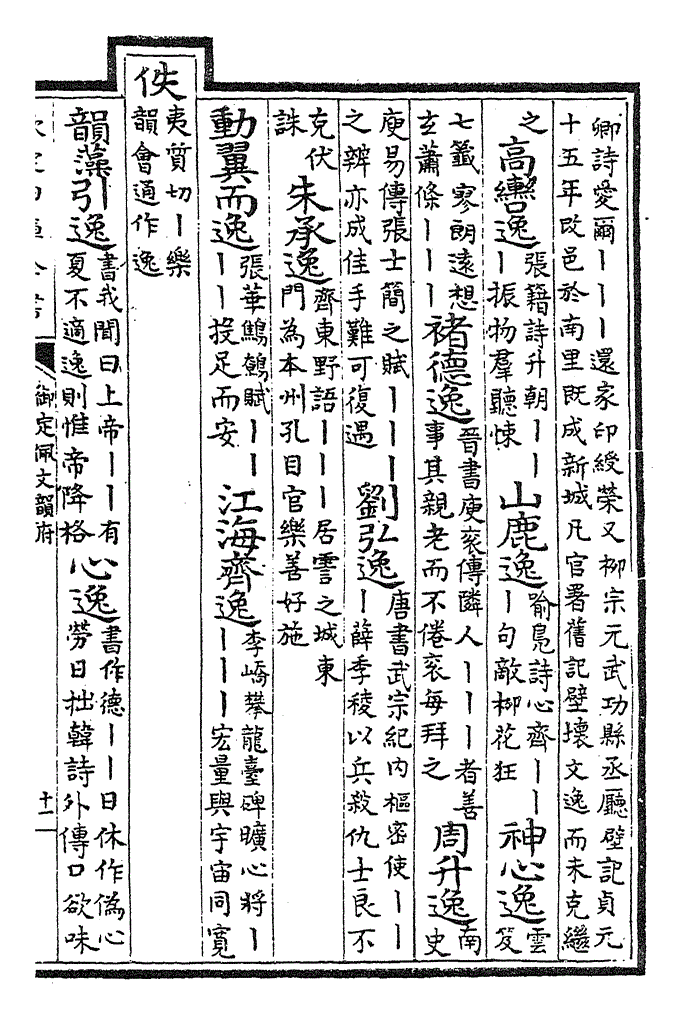 卿詩愛爾丨丨丨還家印綬榮又柳宗元武功縣丞廳壁記貞元
十五年改邑於南里既成新城凡官署舊記壁壞文逸而未克繼
之 高轡逸 張籍詩升朝丨丨丨振物羣聽悚 山鹿逸 喻鳧詩心齊丨丨丨句敵柳花狂 神心逸 雲笈
七籤寥朗遠想玄蕭條丨丨丨 褚德逸 晉書庾袞傳隣人丨丨丨者善事其親老而不倦袞每拜之 周升逸 南史
庾易傳張士簡之賦丨丨丨之辨亦成佳手難可復遇 劉弘逸 唐書武宗紀内樞密使丨丨丨薛季稜以兵殺仇士良不
克伏誅 朱承逸 齊東野語丨丨丨居霅之城東門為本州孔目官樂善好施
動翼而逸 張華鷦鷯賦丨丨丨丨投足而安 江海齊逸 李嶠攀龍臺碑曠心將丨丨丨丨宏量與宇宙同寬
佚 夷質切丨樂韻會通作逸
韻藻引逸 書我聞曰上帝丨丨有夏不適逸則惟帝降格 心逸 書作德丨丨日休作偽心勞日拙韓詩外傳口欲味
御定佩文韻府
十一